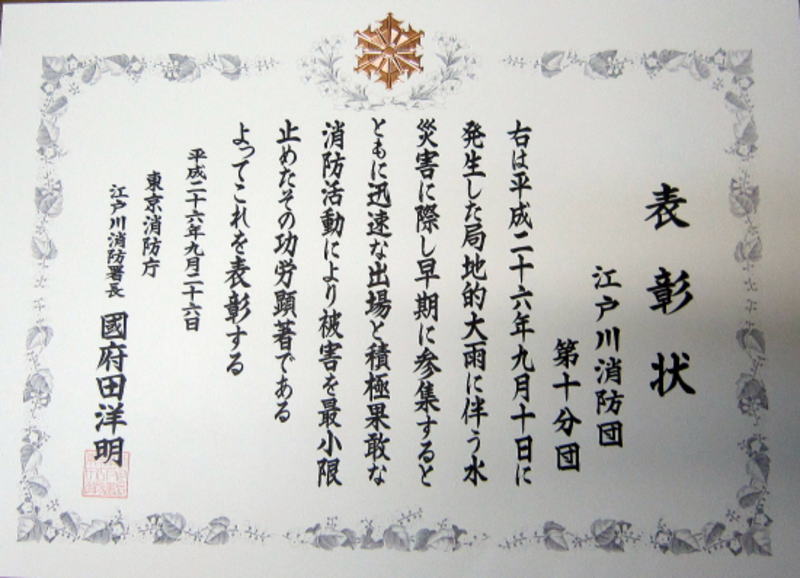 表彰状
江戸川消防団
第十分団
右は平成二十六年九月十日に
発生した局地的大雨に伴う水
災害に際し早期に参集すると
ともに迅速な出場と積極果敢な
消防活動により被害を最小限
止めたその功労顕著である
よってこれを表彰する
平成二十六年九月二十六日
東京消防庁
江戸川消防署長 國府田洋明